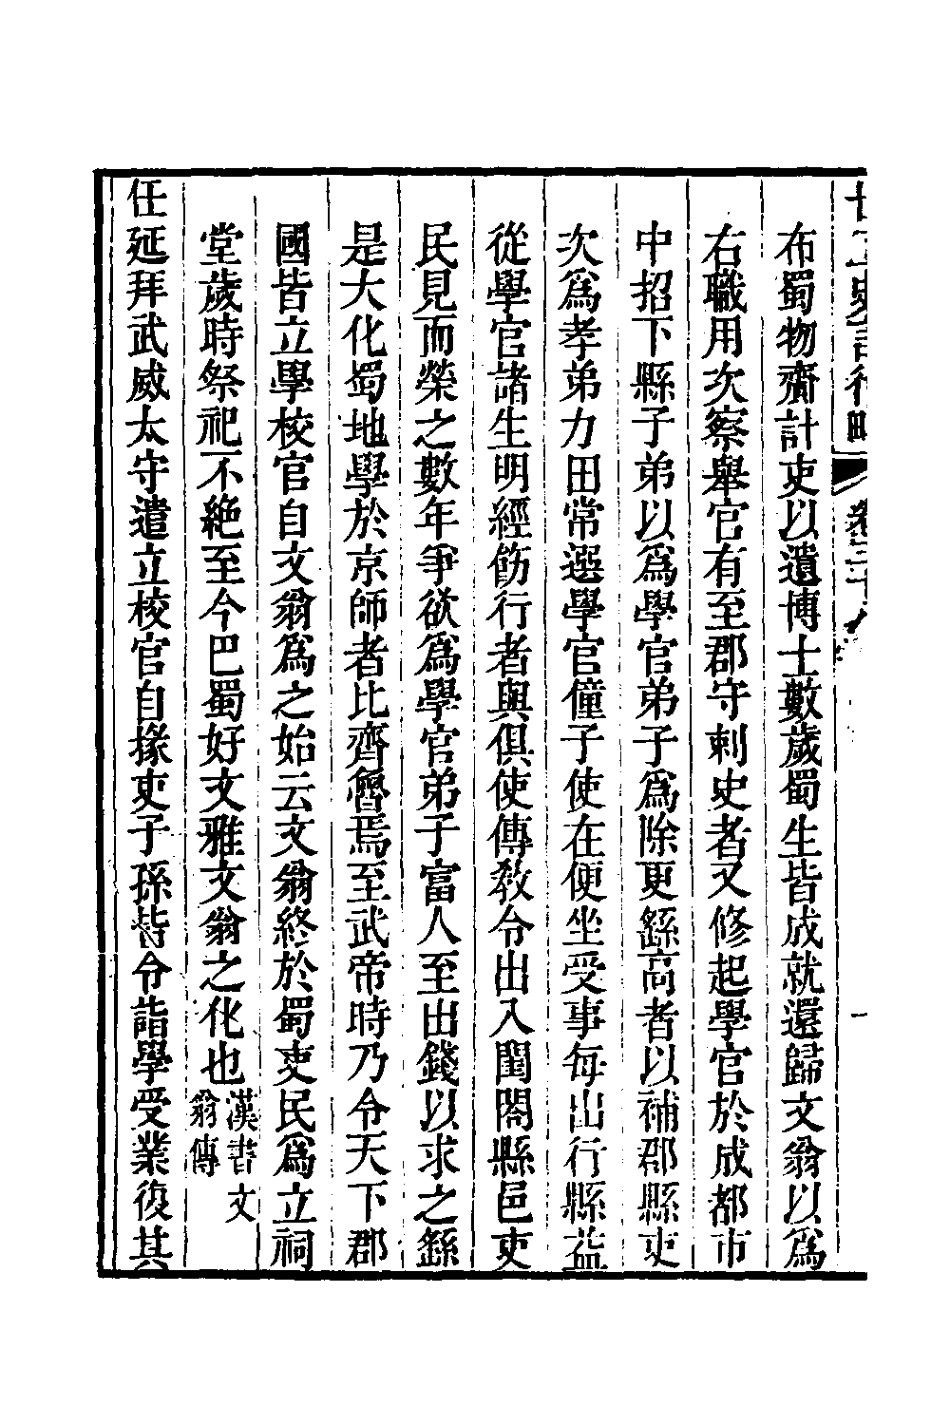 布蜀物齎計吏以遺博士數歲蜀生皆成就還歸文翁以爲
右職用次察舉官有至郡守刺史者又修起學官於成都市
中招下縣子弟以爲學官弟子爲除更繇高者以補郡縣吏
次爲孝弟力田常選學官僮子使在便坐受事每出行縣益
從學官諸生明經飭行者與俱使傳教令出入閨閤縣邑吏
民見而榮之數年爭欲爲學官弟子富人至出錢以求之繇
是大化蜀地學於京師者比齊魯焉至武帝時乃令天下郡
國皆立學校官自文翁爲之始云文翁終於蜀吏民爲立祠
堂歲時祭祀不絶至今巴蜀好文雅文翁之化也漢書文翁傳
任延拜武威太守遣立校官自掾吏子孫皆令詣學受業復其